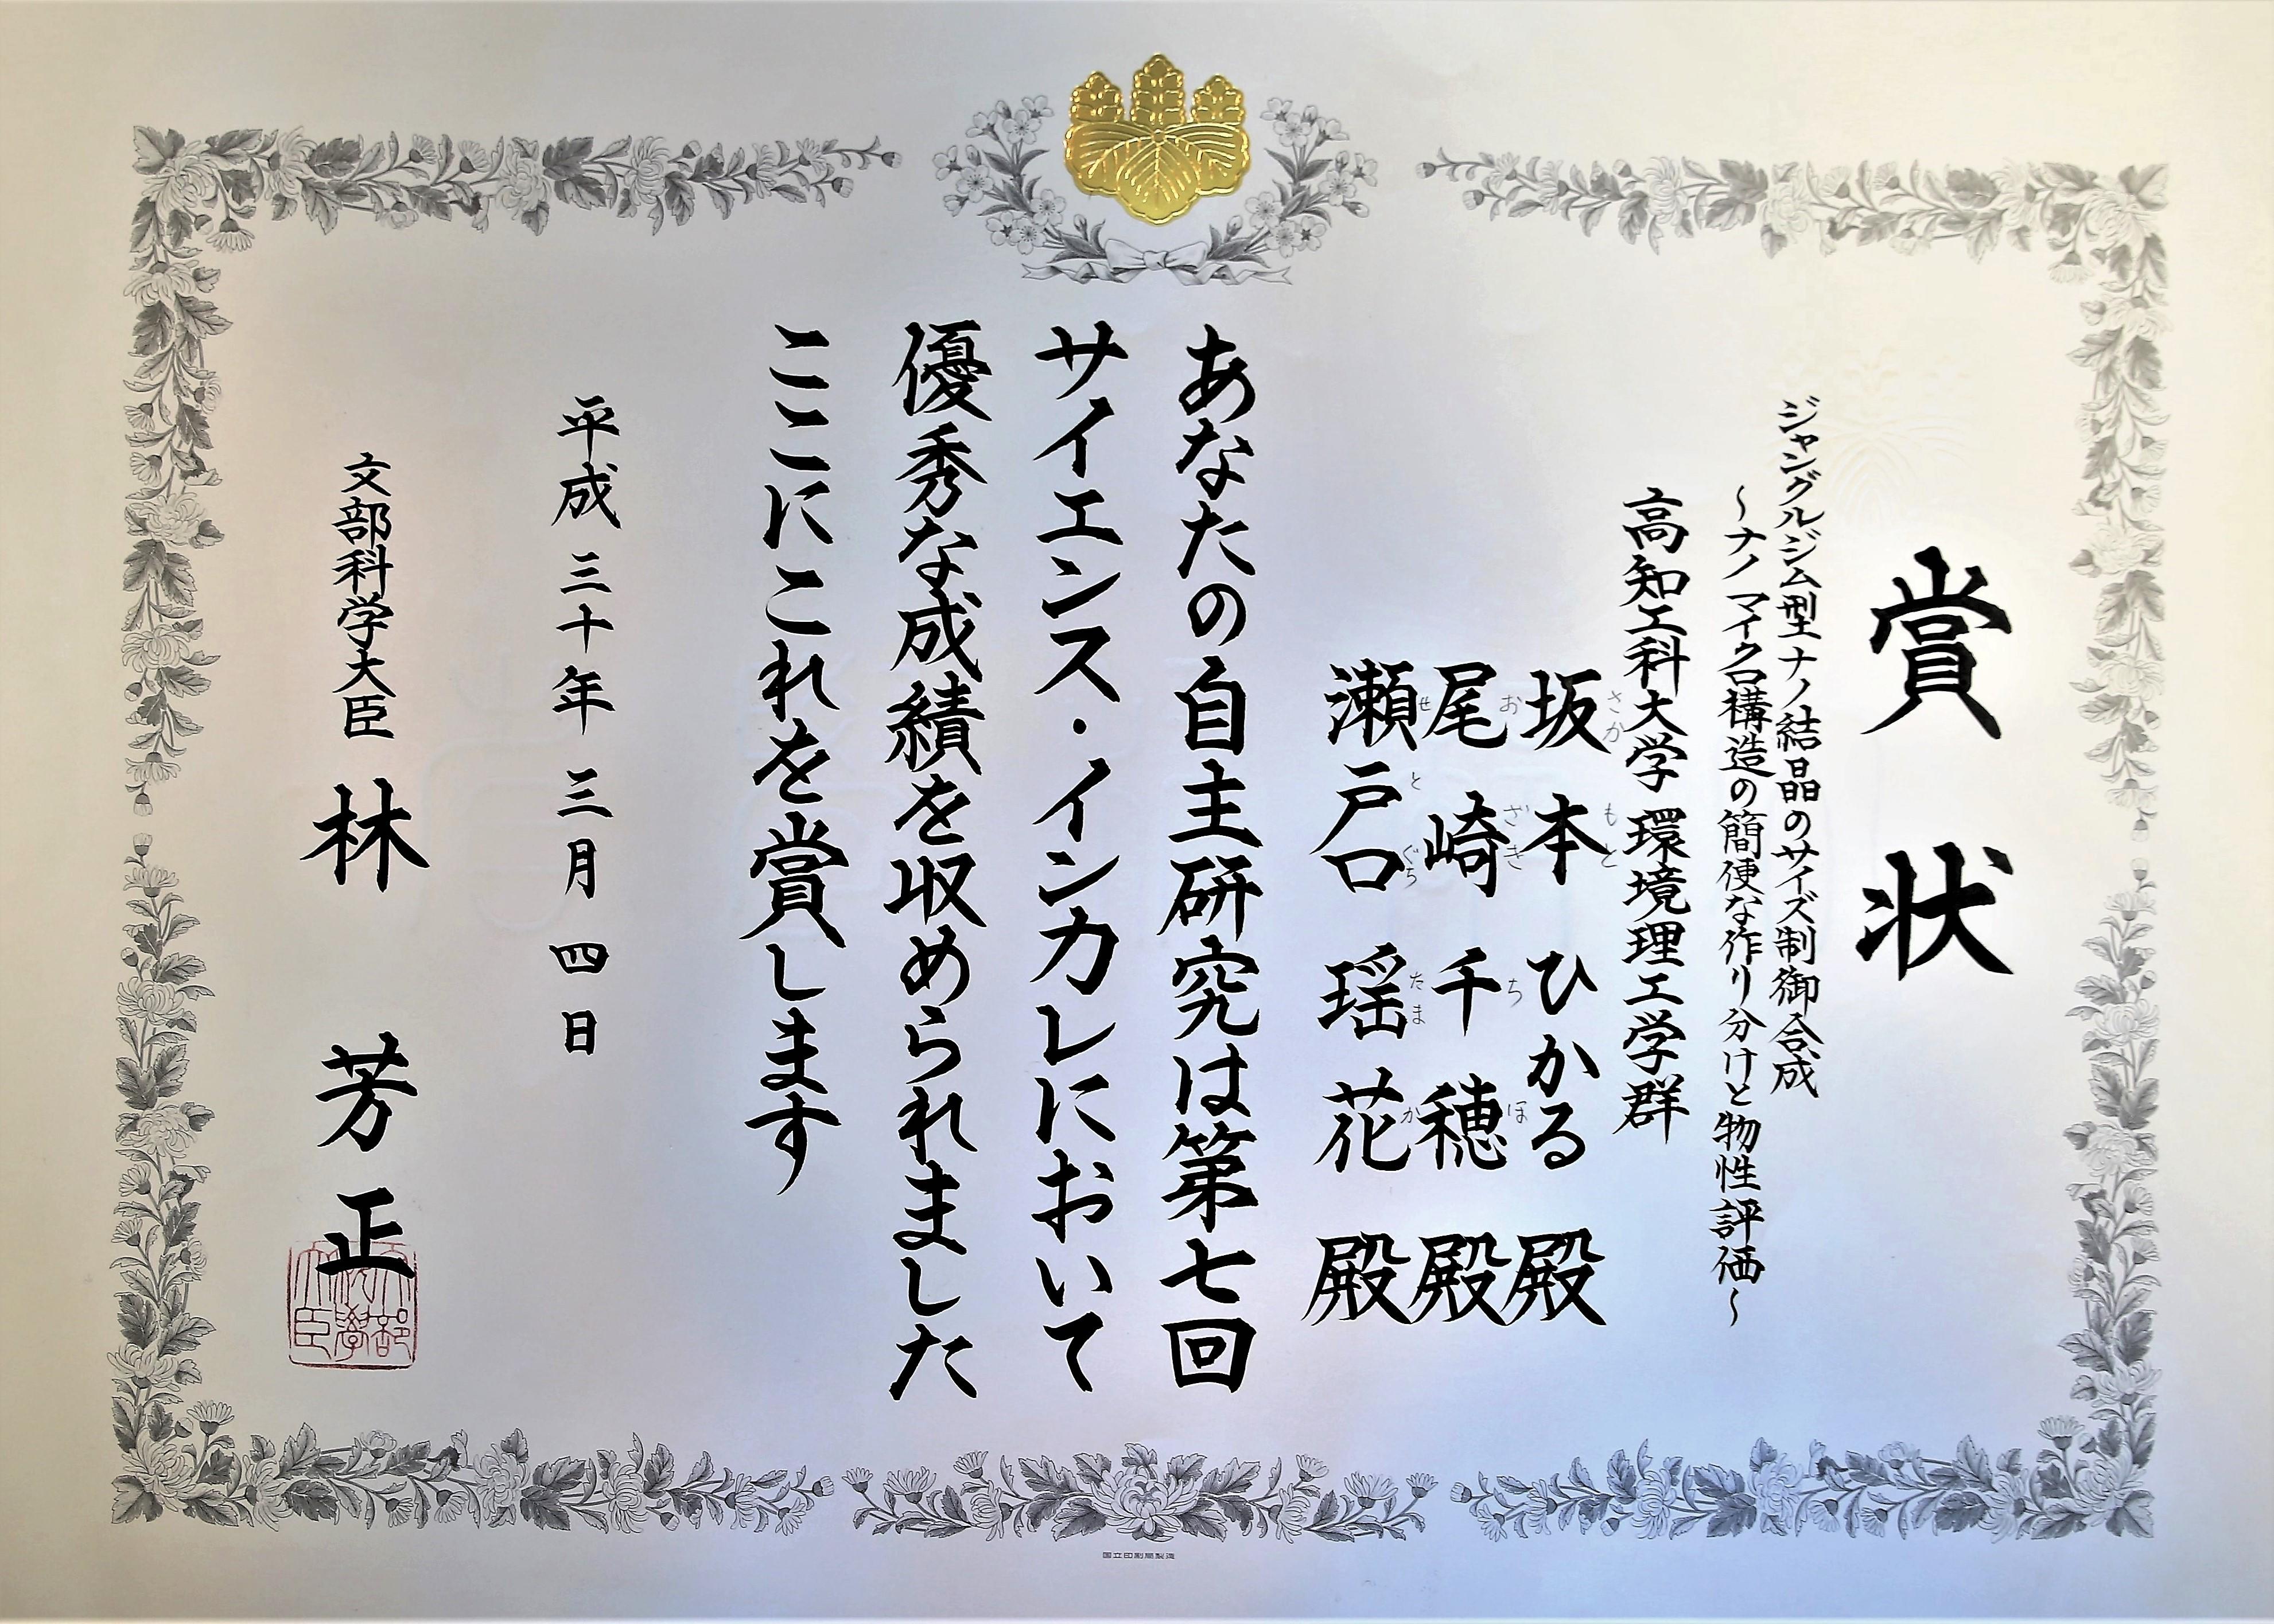 賞状
ジャングルジム型ナノ結晶のサイズ制御合成
～ナノマイクロ構造の簡便な作り分けと物性評価～
高知工科大学 環境理工学群
坂本 ひかる 殿
さか もと
尾崎 千穂 殿
お ざき ち ほ
瀬戸口 瑶花 殿
せ と ぐち たま か
あなたの自主研究は第七回
サイエンス・インカレにおいて
優秀な成績を収められました
ここにこれを賞します
平成三十年三月四日
文部科学大臣 林 芳正
文部科学大臣
国立印刷局製造